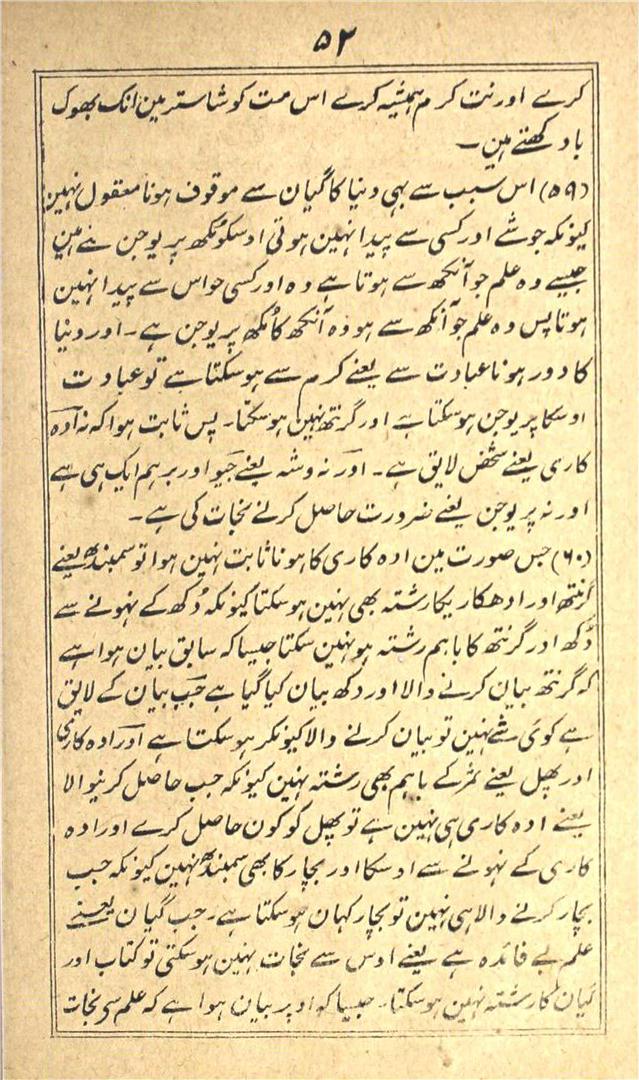 ۵۲
کرے اور نت کرم ہمیشہ کرے اس مت کو شاستر مین انک بھوک
باد کھتے ہین ۔
(۵۹) اس سبب سے بہی دنیا کا گیان سے موقوف ہونا معقول نہین
کیونکہ جو شے اور کسی سے پیدا نہین ہوتی اوسکو مُکھ پریوجن کہتے ہین
جیسے وہ علم جو آنکھ سے ہوتا ہے وہ اور کسی حواس سے پیدا نہین
ہوتا پس وہ علم جو آنکھ سے ہو وہ آنکھ کا مُکھ پریوجن ہے ۔ اور دنیا
کا دور ہونا عبادت سے یعنے کرم سے ہو سکتا ہے تو عبادت
اوسکا پریوجن ہو سکتا ہے اور گرنتھ نہین ہو سکتا ۔ پس ثابت ہوا کہ نہ آدہ
کاری یعنے شخص لایق ہے ۔ اور نہ وشہ یعنے جیو اور برہم ایک ہی ہے
اور نہ پریوجن یعنے ضرورت حاصل کرنے نجات کی ہے ۔
(۶۰) جس صورت مین ادہ کاری کا ہونا ثابت نہین ہوا تو سمبندھ یعنے
گرنتھ اور ادھکاریکا رشتہ بھی نہین ہو سکتا کیونکہ دُکھ کے نہونے سے
دُکھ اور گرنتھ کا باہم رشتہ ہو نہین سکتا جیسا کہ سابق بیان ہوا ہے
کہ گرنتھ بیان کرنے والا اور دکھ بیان کیا گیا ہے جب بیان کے لایق
ہے کوئی شے نہین تو بیان کرنے والا کیونکر ہو سکتا ہے اور ادہ کاری
اور پھل یعنے ثمر کے باہم بھی رشتہ نہین کیونکہ جب حاصل کرنیوالا
یعنے ادہ کاری ہی نہین ہے تو پھل کو کون حاصل کرے اور ادہ
کاری کے نہونے سے اوسکا اور بچار کا بھی سمبندھ نہین کیونکہ جب
بچار کرنے والا ہی نہین تو بچار کہان ہو سکتا ہے ۔ جب گیان یعنے
علم بے فائدہ ہے یعنے اوس سے نجات نہین ہو سکتی تو کتاب اور
گیان کا رشتہ نہین ہو سکتا ۔ جیسا کہ اوپر بیان ہوا ہے کہ علم سے نجات